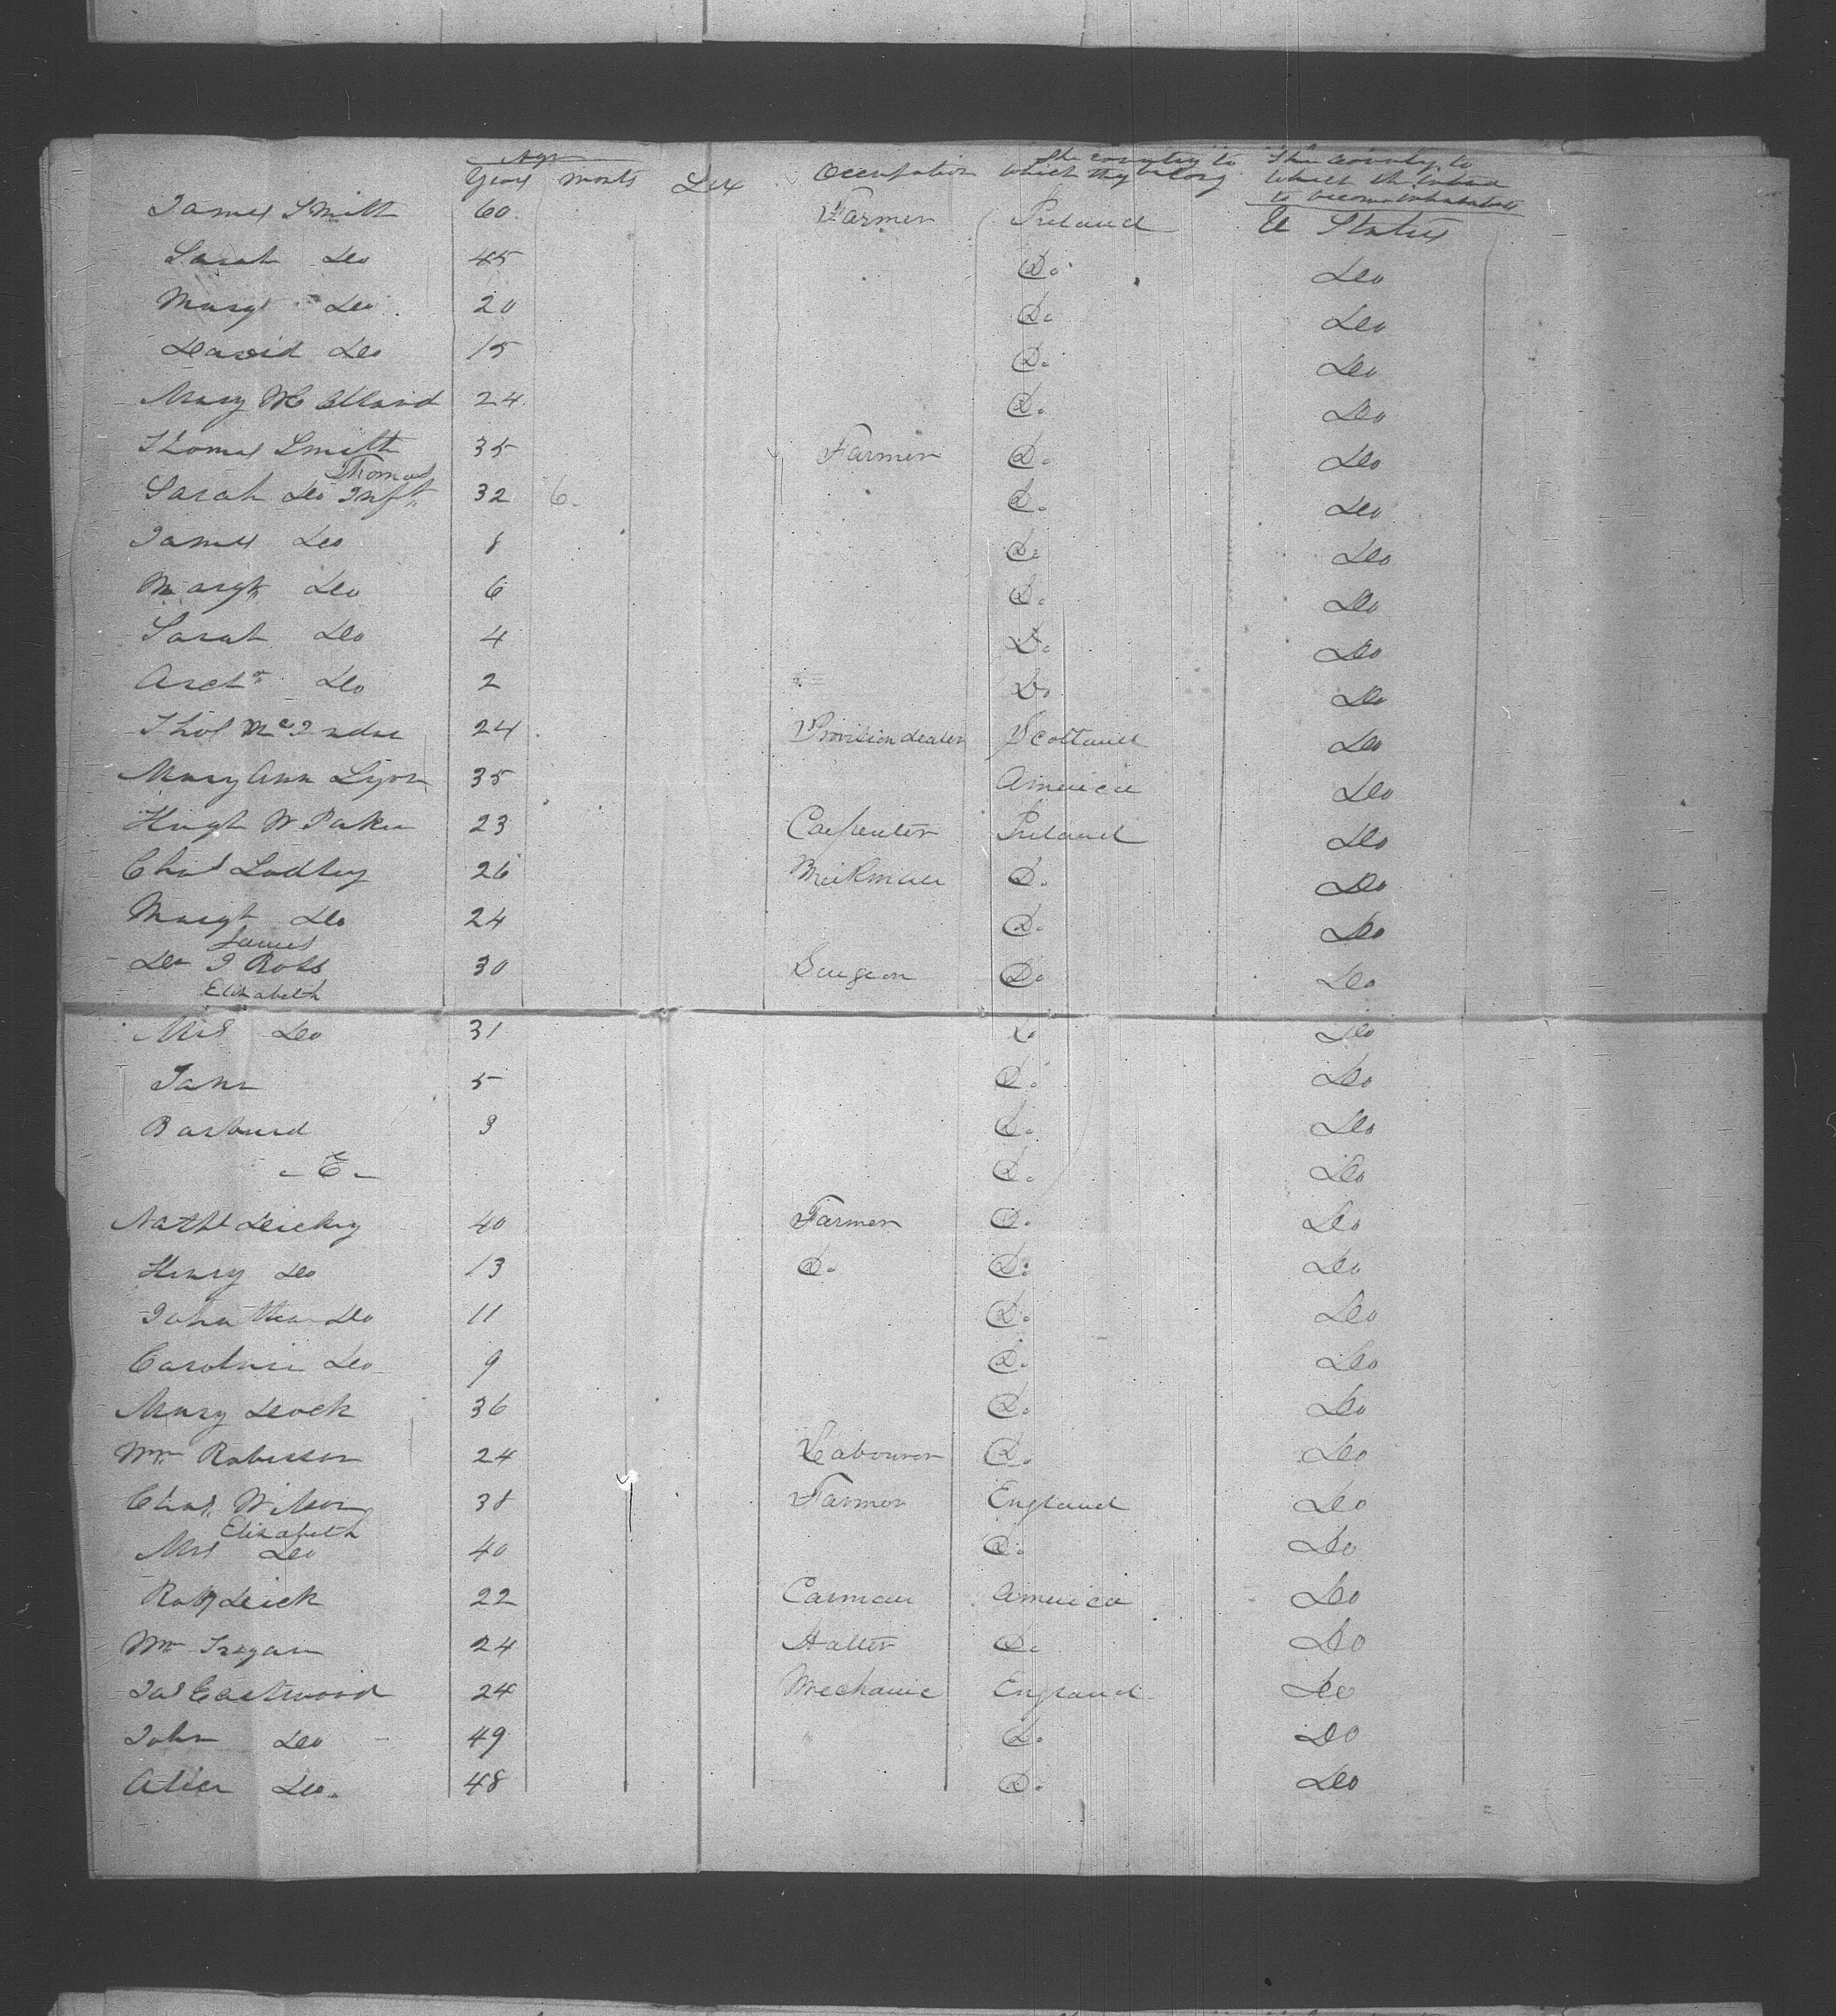 Age
Years Monts Sex Occupation The country to which they belong The country to which th intend to become inhabitants
James Smith 60 Farmer Ireland U States
Sarah Do 45 Do Do
Mary Do 20 Do Do
David Do 15 Do Do
Mary Mc 24 Do Do
Thomas Smith 35 Farmer Do Do
Thomas
Sarah Do Inft 32 6 Do Do
James Do 8 Do Do
Margt Do 6 Do Do
Sarah Do 4 Do Do
Archd Do 2 Do Do
Thos Mc 24 Provision dealer Scotland Do
Mary Ann Lyon 35 America Do
Hugh W Paker 23 Carpenter Ireland Do
Chas Ludley 26 Milkman Do Do
Margt Do 24 Do Do
James
Dr J Ross 30 Surgeon Do Do
Elizabeth
Mrs Do 31 Do Do
Jane 5 Do Do
Barbura 3 Do Do
- E - Do Do
Nathl Dickey 40 Farmer Do Do
Henry Do 13 Do Do Do
Johnathan Do 11 Do Do
Caroline Do 9 Do Do
Mary Dock 36 Do Do
Wm Robisson 24 Labourer Do Do
Chas Wilson 38 Farmer England Do
Elizabeth
Mrs Do 40 Do Do
Robt Dick 22 Carman America Do
Wm 24 Hatter Do Do
Jas Eastwood 24 Mechanic England Do
John Do 49 Do Do
Alice Do 48 Do Do